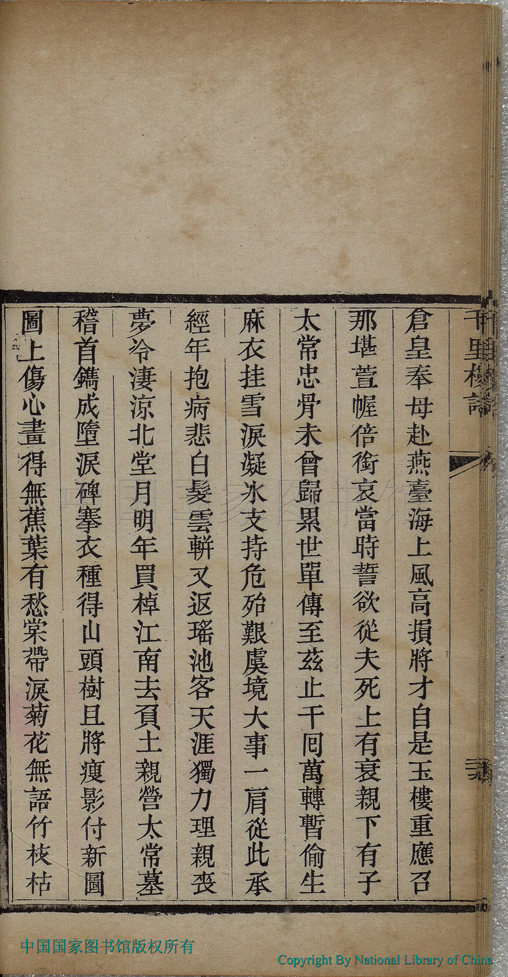 倉皇奉母赴燕臺海上風高損將才自是玉樓重應召
那堪萱幄倍銜哀當時誓欲從夫死上有衰親下有子
太常忠骨未曾歸累世單傳至茲止千囘萬轉暫偷生
麻衣挂雪淚凝冰支持危殆艱虞境大事一肩從此承
經年抱病悲白髮雲軿又返瑤池客天涯獨力理親喪
夢冷淒涼北堂月明年買棹江南去負土親營太常墓
稽首鐫成墮淚碑搴衣種得山頭樹且將瘦影付新圖
圖上傷心畫得無蕉葉有愁棠帶淚菊花無語竹枝枯
中国国家图书馆版权所有
Copyright By National Library of China